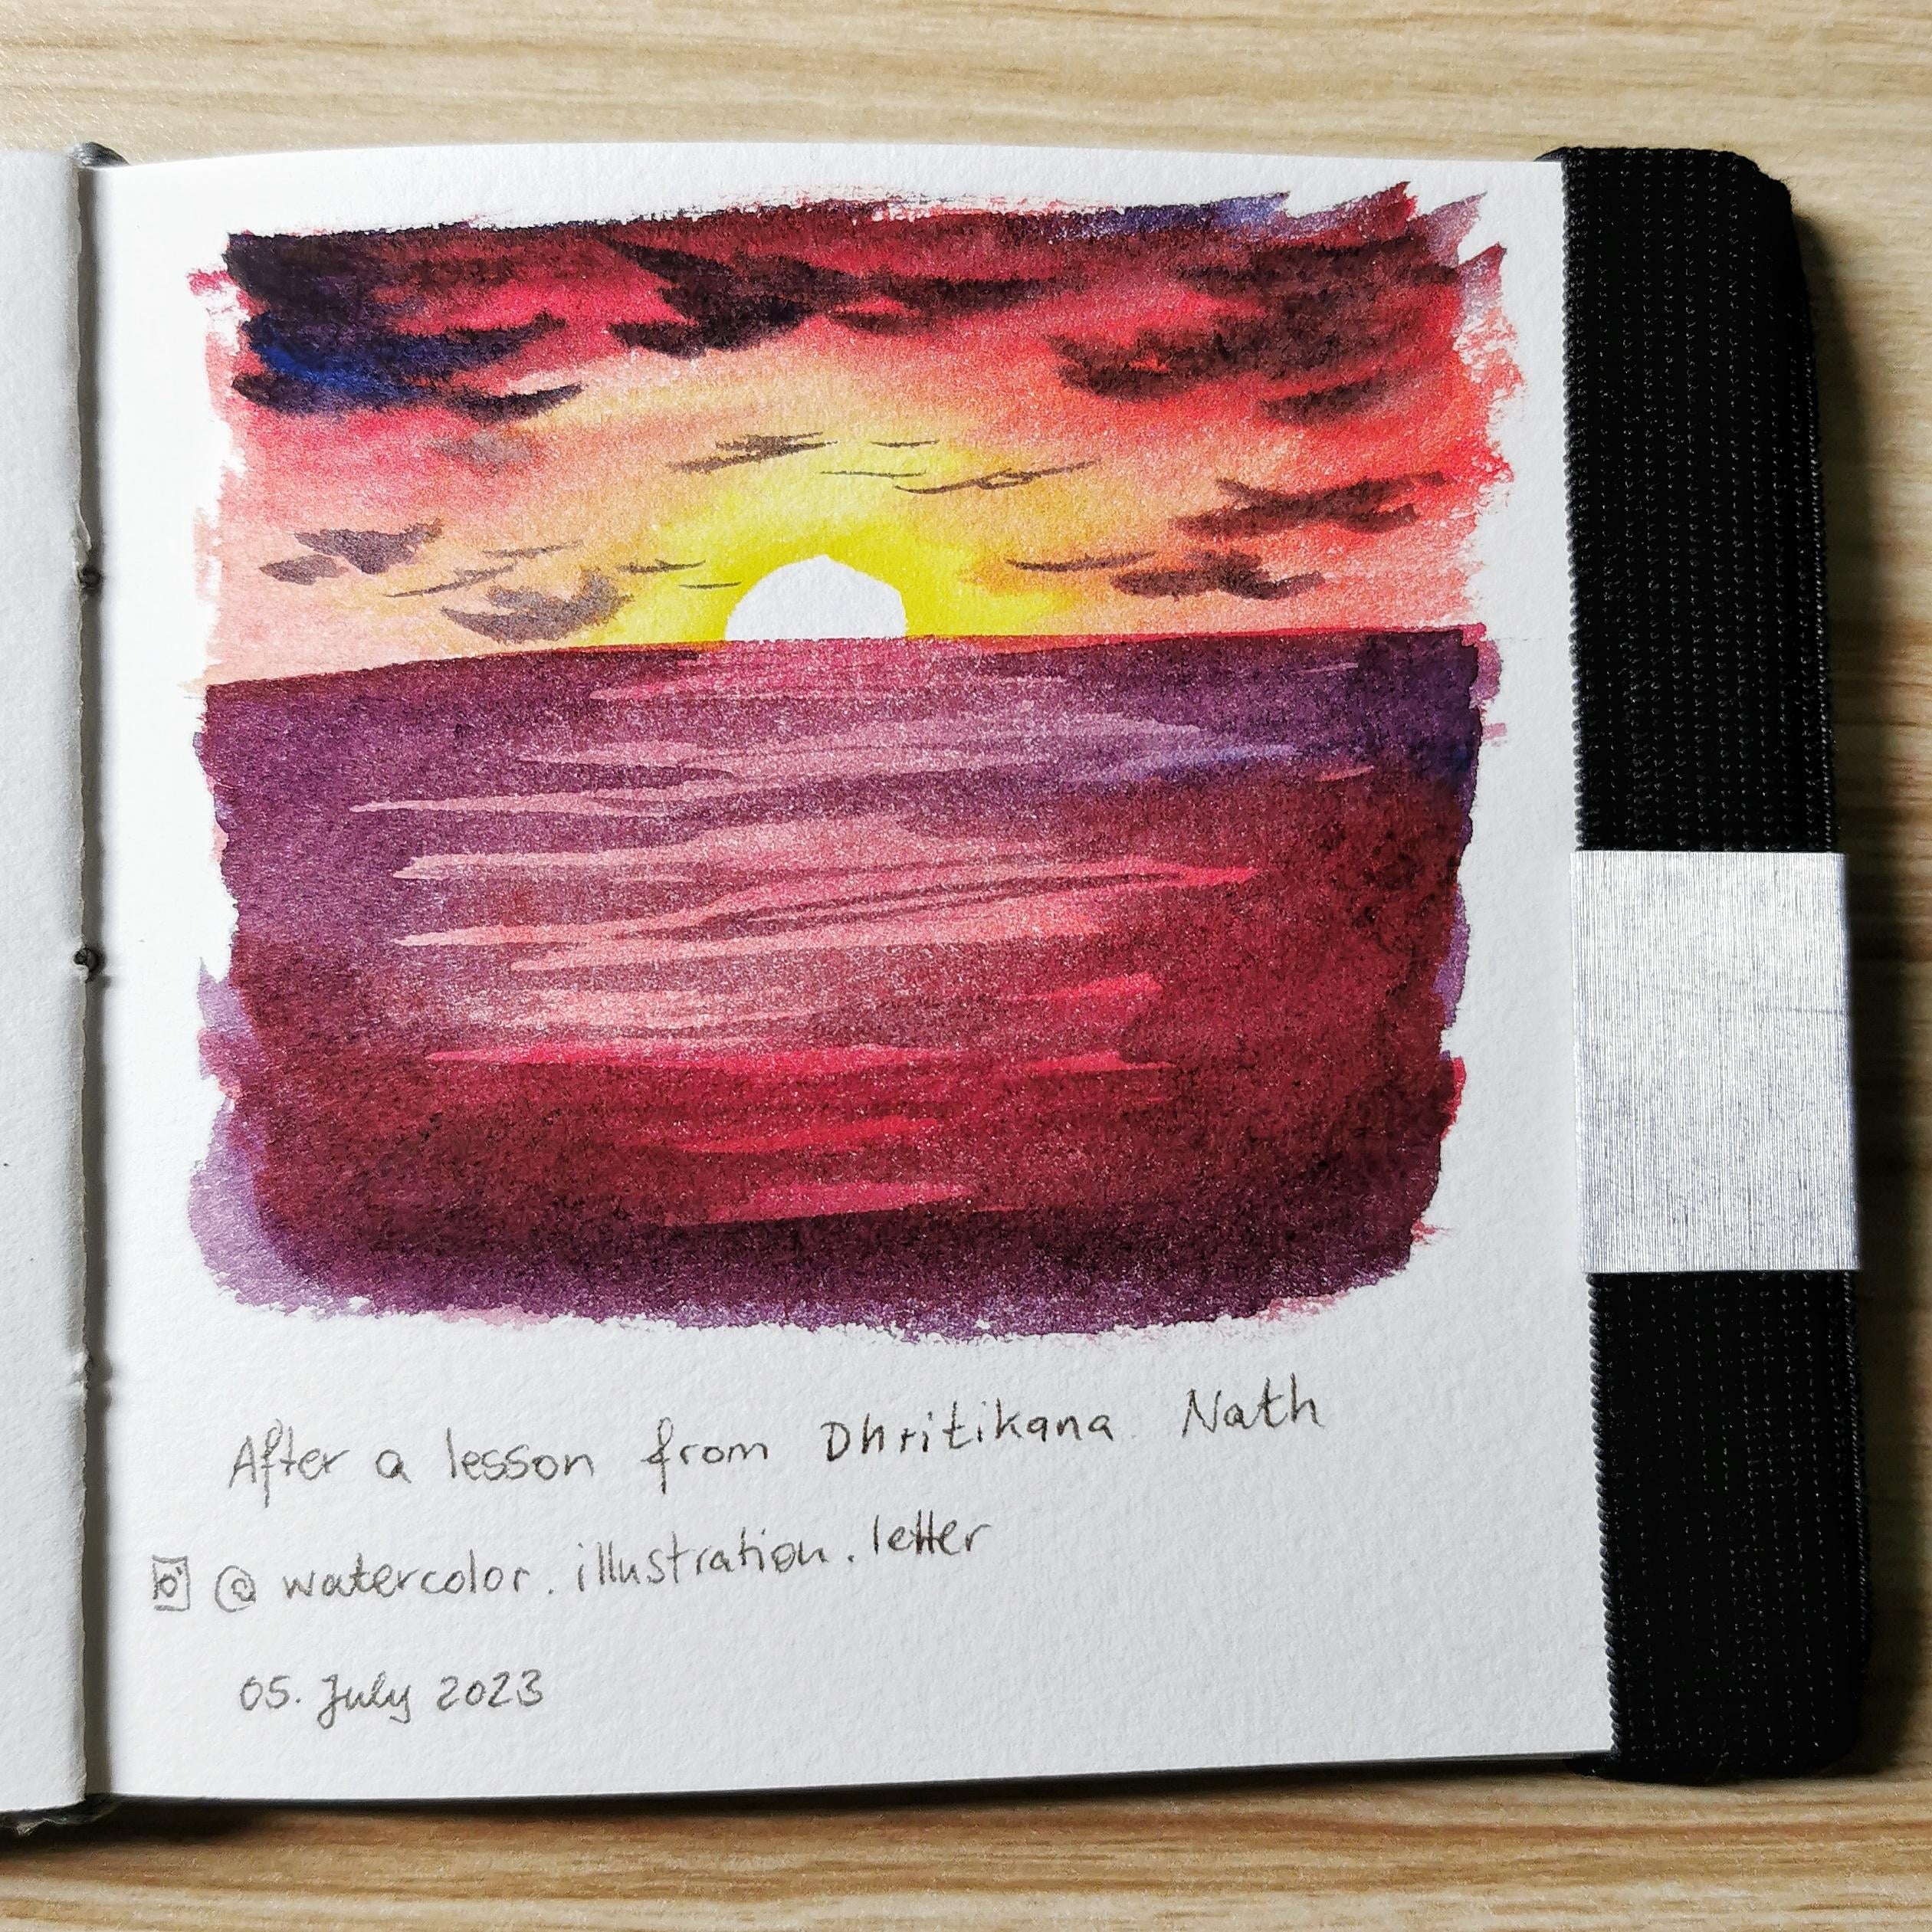 After a lesson from Dhritikana Nath
@watercolor.illustration.letter
05. July 2023